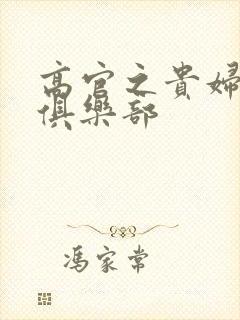 高官之貴婦
俱樂部
馮家常